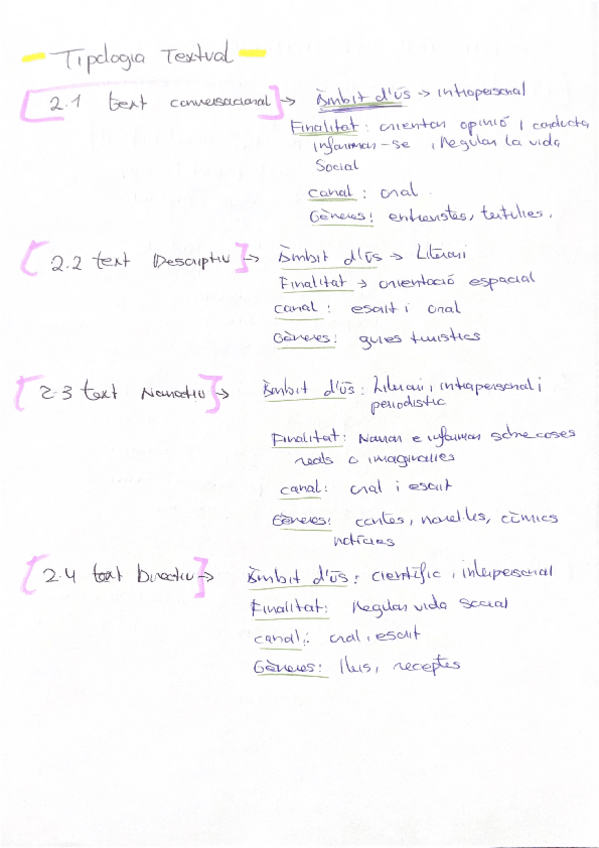 Tipologia Textual
2.1 text conversacional → Àmbit d'ús → intrapersonal
Finalitat: orientar opinió i conducta
informar-se, Regular la vida
Social
canal: oral.
Gèneres: entrevistes, tertulies.
2.2 text Descriptiu → Àmbit d'ús → Literari
Finalitat → orientació espacial
canal: escrit i oral
Gèneres: guies turistics
2.3 text Narratiu → Àmbit d'ús: Literari, intrapersonal i
periodistic
Finalitat: Narrar e informar sobre coses
reals o imaginaries
canal: oral i escrit
Gèneres: contes, novel·les, còmics
notícies
2.4 text Directiu → Àmbit d'ús: científic, interpersonal
Finalitat: Regular vida social
canal: oral, escrit
Gèneres: lleis, receptes